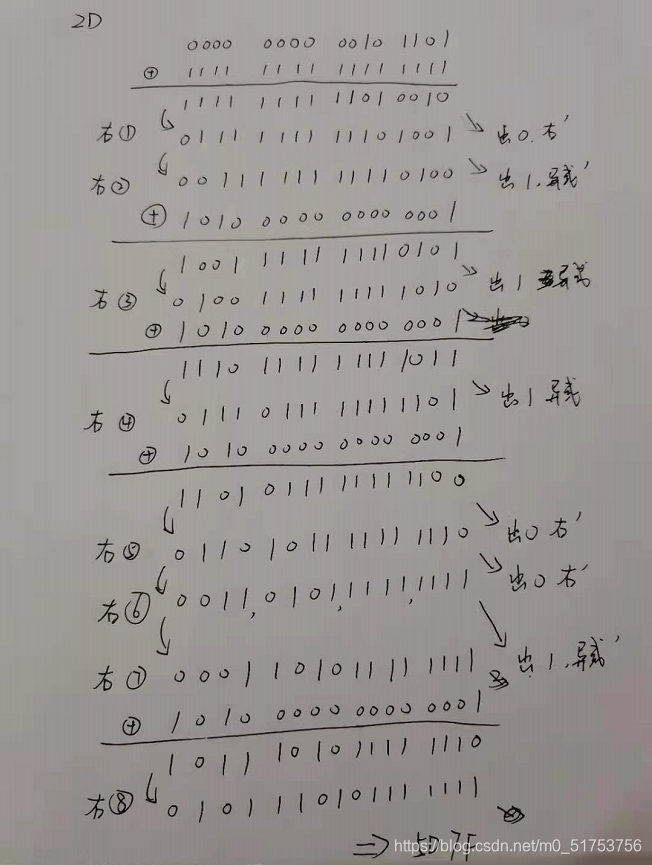 2D
0000 0000 0010 1101
⊕ 1111 1111 1111 1111
1111 1111 1101 0010
右① 0111 1111 1110 1001 出0.右'
右② 0011 1111 1111 0100 出1.异或'
⊕ 1010 0000 0000 0001
1001 1111 1111 0101
右③ 0100 1111 1111 1010 出1 异或
⊕ 1010 0000 0000 0001
1110 1111 1111 1011
右④ 0111 0111 1111 1101 出1 异或
⊕ 1010 0000 0000 0001
1101 0111 1111 1100
右⑤ 0110 1011 1111 1110 出0 右'
右⑥ 0011,0101,1111,1111 出0 右'
右⑦ 0001 1010 1111 1111 出1.异或'
⊕ 1010 0000 0000 0001
1011 1010 1111 1110
右⑧ 0101 1101 0111 1111
⇒ 5D7F
https://blog.csdn.net/m0_51753756